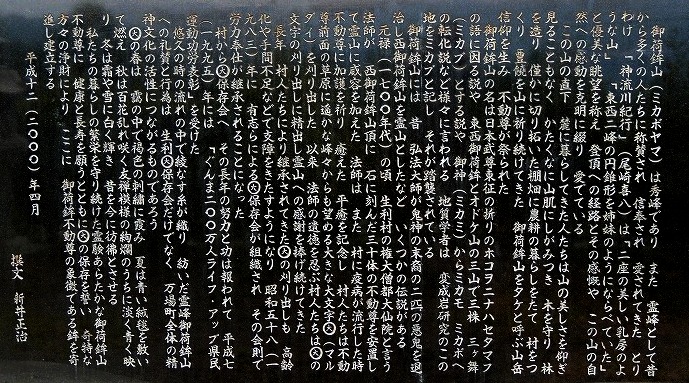 御荷鉾山(ミカボヤマ)は秀峰であり また 霊峰として昔
から多くの人たちに称賛され 信奉され 愛されてきた とり
わけ 「神流川紀行」(尾崎喜八)は「二座の美しい乳房のよ
うな山」 「東西二峰の円錐形を姉妹のようにならべていた」
と優美な眺望を称え 登頂への経路とその感慨や この山の自
然への感動を克明に綴り 愛でている
この山の直下 麓に暮らしてきた人たちは山の美しさを仰ぎ
見ることもなく かたくなに山肌にしがみつき 木を守り 林
を造り 僅かに切り拓いた棚畑に農耕の暮らしをたて 村をつ
くり 豊饒を山に祈り続けてきた 御荷鉾山をタケと呼ぶ山岳
信仰を生み 不動尊が祭られた
御荷鉾山の名は日本武尊東征の折りのホコヲニナハセタマフ
の語に因る説や 東西御荷鉾とオドケ山の三山で三株 三ヶ舞
(ミカブ)とする説や 御神(ミカミ)からミカモ ミカボへ
の転化説など様々に言われる 地質学者は 変成岩研究のこの
地をミカブと記し それが踏襲されている
御荷鉾山には 昔 弘法大師が鬼神の末裔の二匹の悪鬼を退
治し西御荷鉾山を霊山としたなど いくつかの伝説がある
元禄(一七〇〇年代)の頃 生利村の権大僧都大仙院と言う
法師が 西御荷鉾山頂に 石に刻んだ三十体の不動尊を安置し
て霊山に感容を加えた 法師は また 村に疫病が流行した時
不動尊に加護を祈り 癒えた 平癒を記念し 村人たちは不動
尊前面の草原に遥かな峰々からも望める大きな大文字㊅(マル
ダイ)を刈り出した 以来 法師の遺徳を忍ぶ村人たちは㊅の
文字の刈り出しに精出し霊山への感謝を捧げ続けてきた
長年 村人たちにより継承されてきた㊅の刈り出しも 高齢
化や手間不足などで支障をきたすようになり 昭和五十八(一
九八三)年に 有志らによる㊅保存会が組織され その会則で
労力奉仕が継承されることになった
村から㊅保存会へ その長年の努力と功は報われて 平成七
(一九九五)年には 「ぐんま二〇〇万人ライフ・アップ県民
運動功労表彰」を受けた
悠久の時の流れの中で綾なす糸が織り 紡いだ霊峰御荷鉾山
への礼賛と行為は 生利㊅保存会だけでなく 万場町全体の精
神文化の活性につながるものであろう
㊅の春は 靄の中で褐色の刺繍に霞み 夏は青い絨毯を敷い
て燃え 秋は百花の乱れ咲く友禅模様の絢爛のうちに淡く青く映
り 冬は霜や雪に白く輝き 昔を今に彷彿とさせる
私たちの暮らしの繁栄を守り続けた霊験あらたかな御荷鉾山
不動尊に 健康と長寿を願うとともに㊅の保存を誓い 奇特な
方々の浄財により ここに 御荷鉾不動尊の象徴である鉾を寄
進し建立する
平成十二(二〇〇〇)年四月
撰文 新井正治